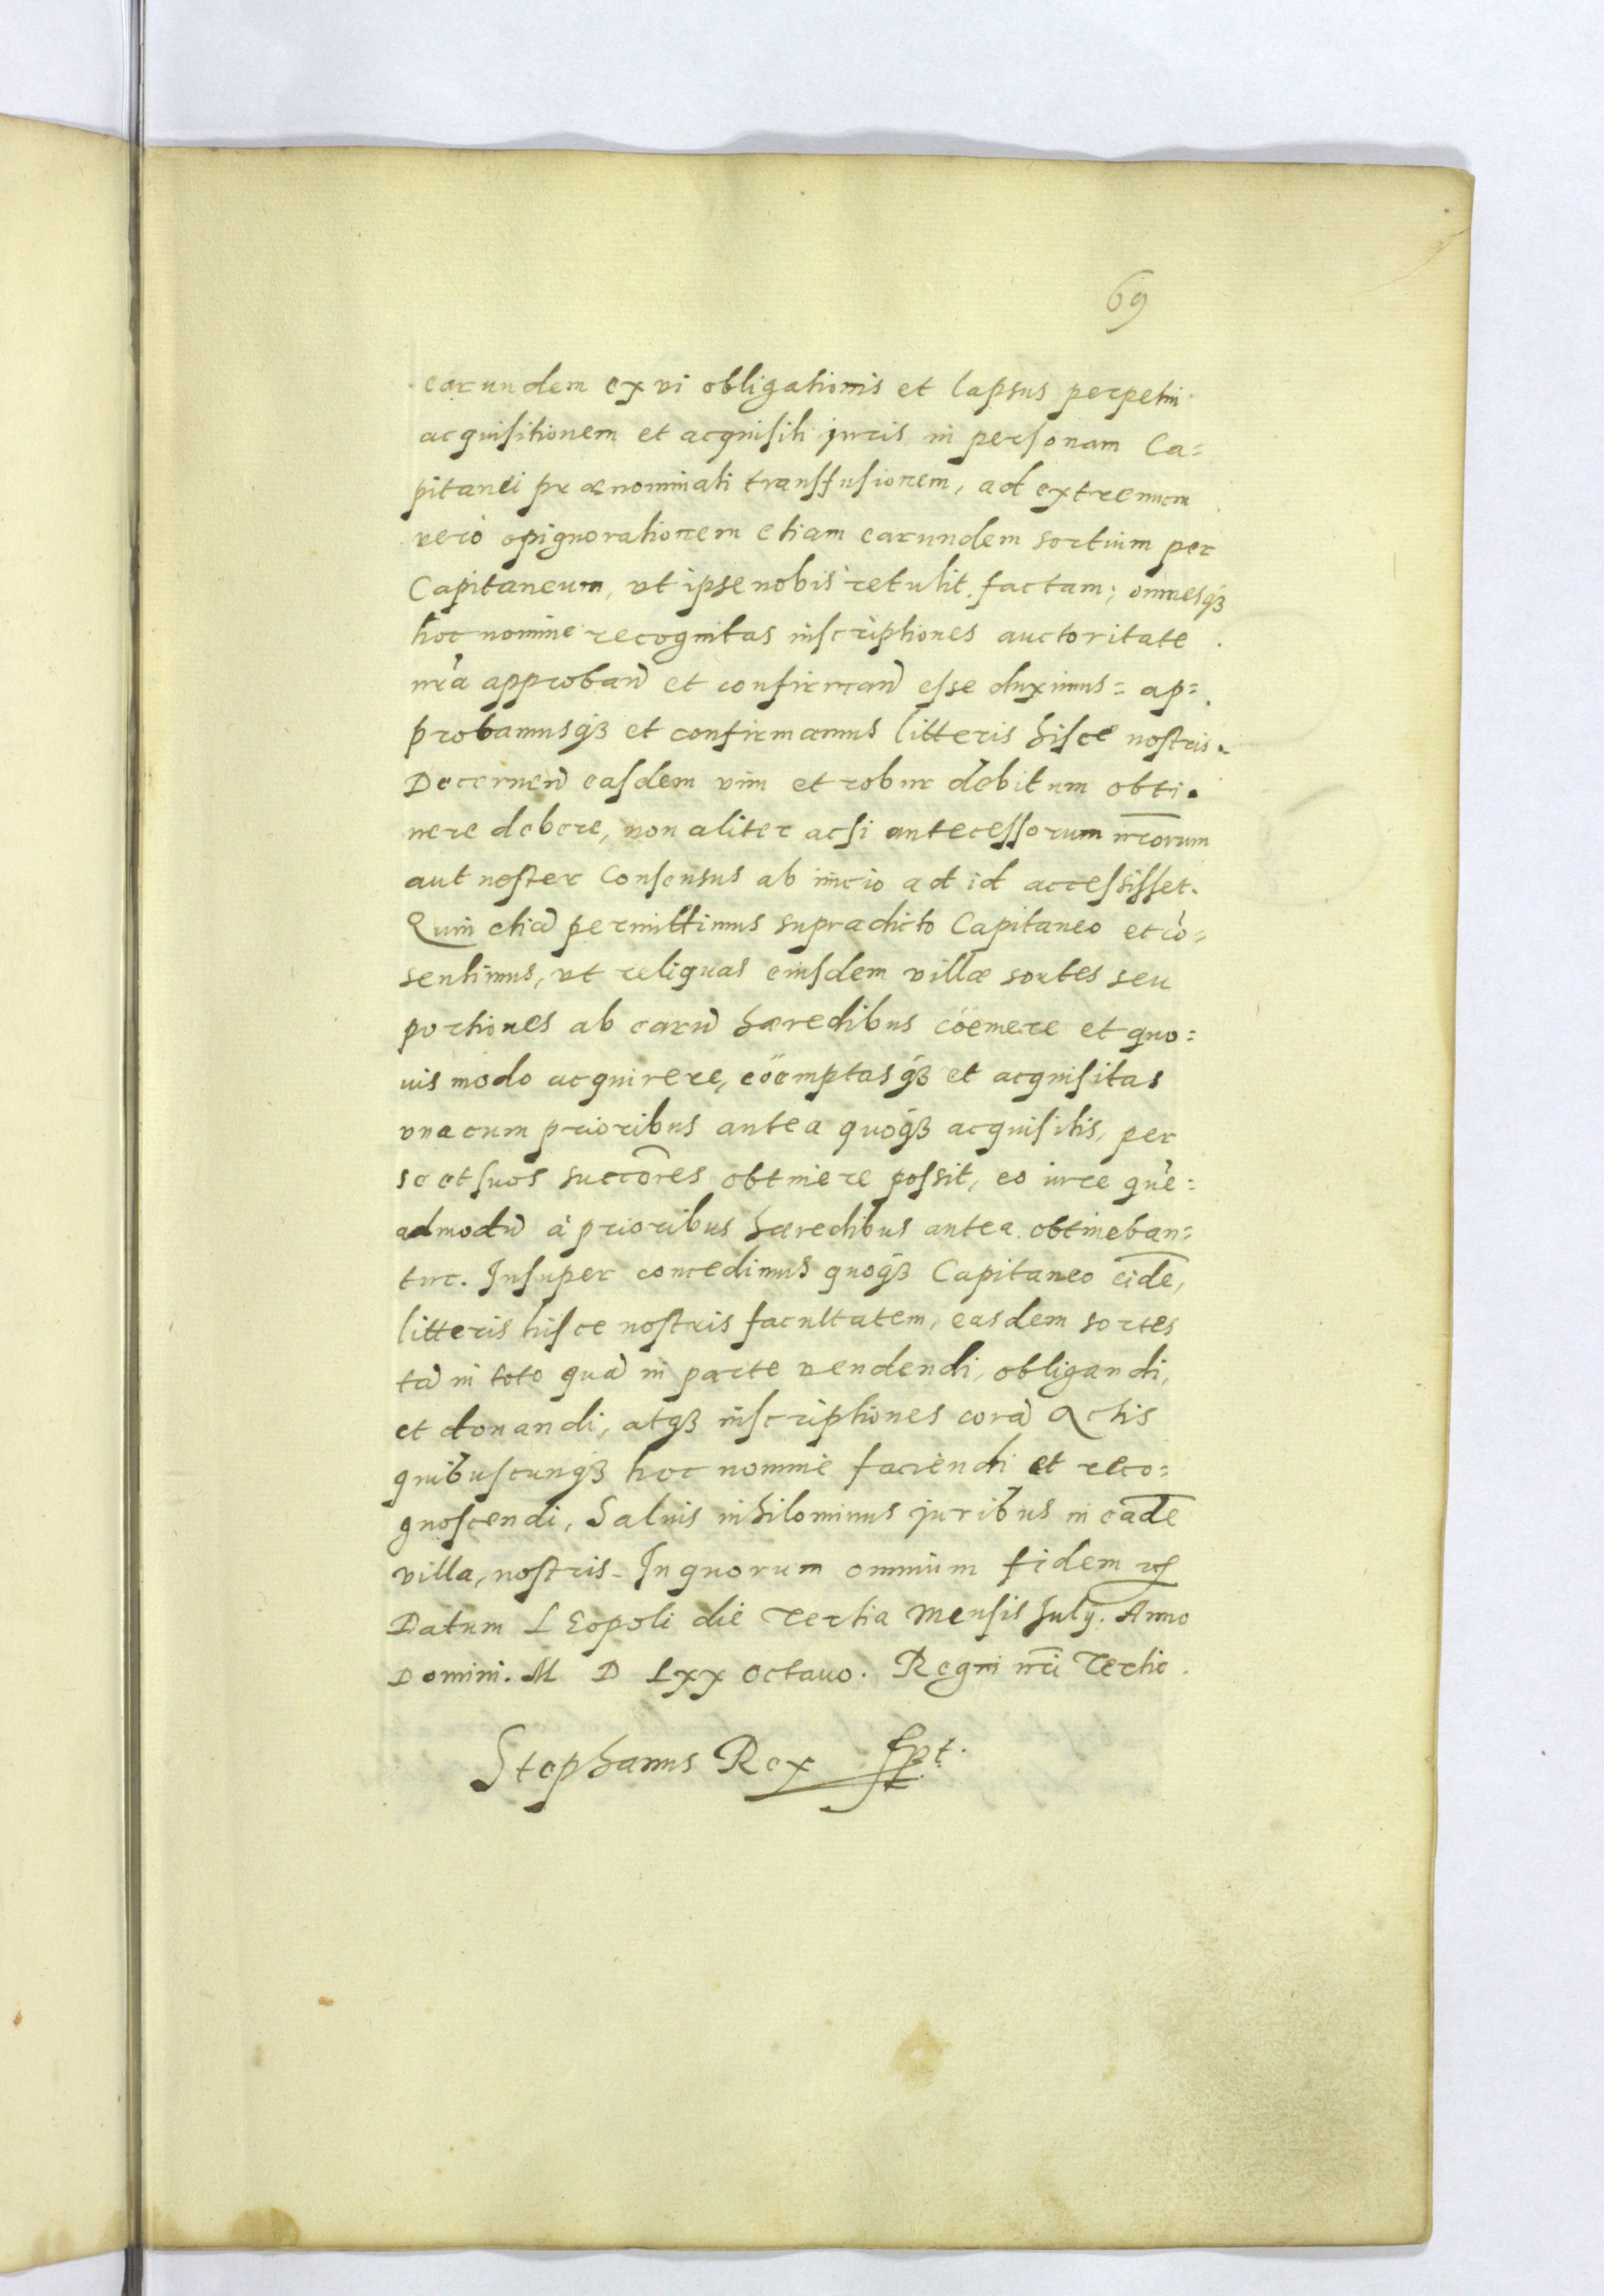 69
earundem ex vi obligationis et lapsus perpetui
acquisitionem et acquisiti juris in personam Ca=
pitanei prænominati transfusionem, ad extremum
verò opignorationem etiam earundem sortium per
Capitaneum, vt ipse nobis retulit factam; omnesq3
hoc nomine recognitas inscriptiones auctoritate
nr̃a approban̄ et confirman̄ esse duximus= ap=
probamusq3 et confirmamus litteris hisce nostris.
Decernen̄ easdem vim et robur debitum obti.
nere debere, non aliter acsi antecessorum nr̄orum
aut noster Consensus ab inicio ad id accessisset.
Quin etiā permittimus supradicto Capitaneo et cò=
sentimus, vt reliquas eiusdem villæ sortes seu
portiones ab earū hæredibus cöemere et quo=
uis modo acquirere, cöemptasq3 et acquisitas
vna cum prioribus antea quoq3 acquisitis, per
se et suos succōres obtinere possit, eo iure quē=
admodū à prioribus hæredibus antea obtineban=
tur. Insuper concedimus quoq3 Capitaneo eidē,
litteris hisce nostris facultatem, easdem sortes
tā in toto quā in parte vendendi, obligandi,
et donandi, atq3 inscriptiones corā Actis
quibuscunq3 hoc nomine faciendi et reco=
gnoscendi, Saluis nihilominus juribus in eadē
villa, nostris. In quorum omnium fidem
Datum LEopoli die Tertia Mensis July. Anno
Domini. M D Lxx octauo. Regni nr̄i Tertio.
Stephanus Rex sspt.